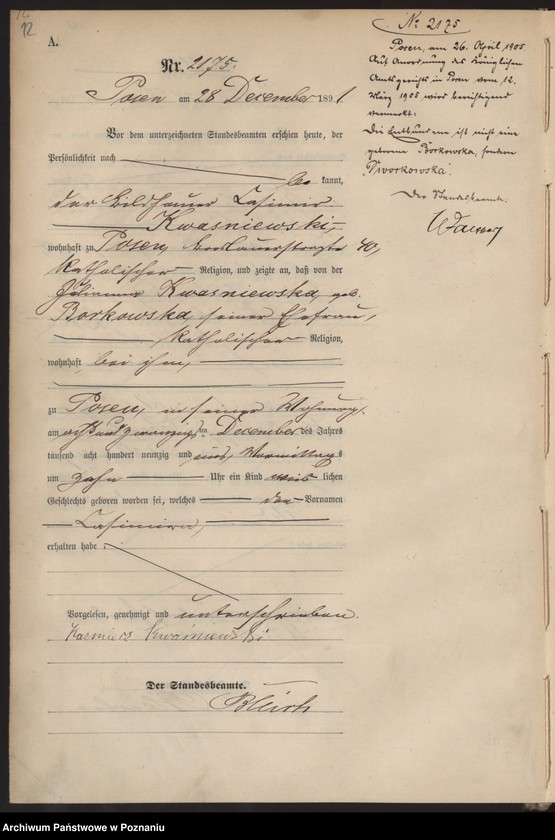 12
A.
Nr. 2175.
Posen am 28 December 1891
Vor dem unterzeichneten Standesbeamten erschien heute, der
Persönlichkeit nach
be kannt,
der Bildhauer Casimir
Kwasniewski,
wohnhaft zu Posen, Breslauerstraße 40,
katholischer Religion, und zeigte an, daß von der
Julianna Kwasniewska, geb.
Borkowska, seiner Ehefrau,
katholischer Religion,
wohnhaft bei ihm,
zu Posen, in seiner Wohnung,
am achtundzwanzigsten December des Jahres
tausend acht hundert neunzig und eins, Vormittags
um zehn Uhr ein Kind weib lichen
Geschlechts geboren worden sei, welches den Vornamen
Casimira,
erhalten habe.
Vorgelesen, genehmigt und unterschrieben.
Kasmierz Kwaśniewski
Der Standesbeamte.
No 2175
Posen, am 26. April 1905
Auf Anordnung des Königlichen
Amtsgerichts in Posen vom 12.
März 1905 wird berichtigend
vermerkt:
Die Entbundene ist nicht eine
geborene Borkowska, sondern
"Dworkowska".
Der Standesbeamte.
Archiwum Państwowe w Poznaniu